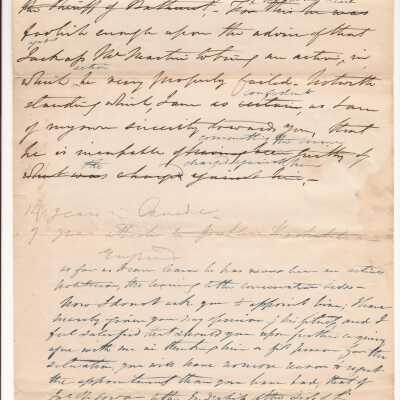 the Sheriff of Bathurst. – For this he was
foolish enough upon the advice of that
Jackass Mr Martin to bring an action, in
which he very properly failed. – Notwith
standing which, I am as certain, as I am
confident
of my own sincerity towards you, that
he is incapable of having been guilty of
committing the
the
charged against him
what was charged against him. –
years in Canada –
England
so far as I can learn he has never been an active
politician, tho leaning to the conservative side. –
Now I do not ask you to appoint him; I have
merely given you my opinion; and I
feel satisfied that should you upon agree
upon with me in thinking him a fit person for the
situation, you will have no more reason to repent
the appointment than you have had, that of
to the Judgeship